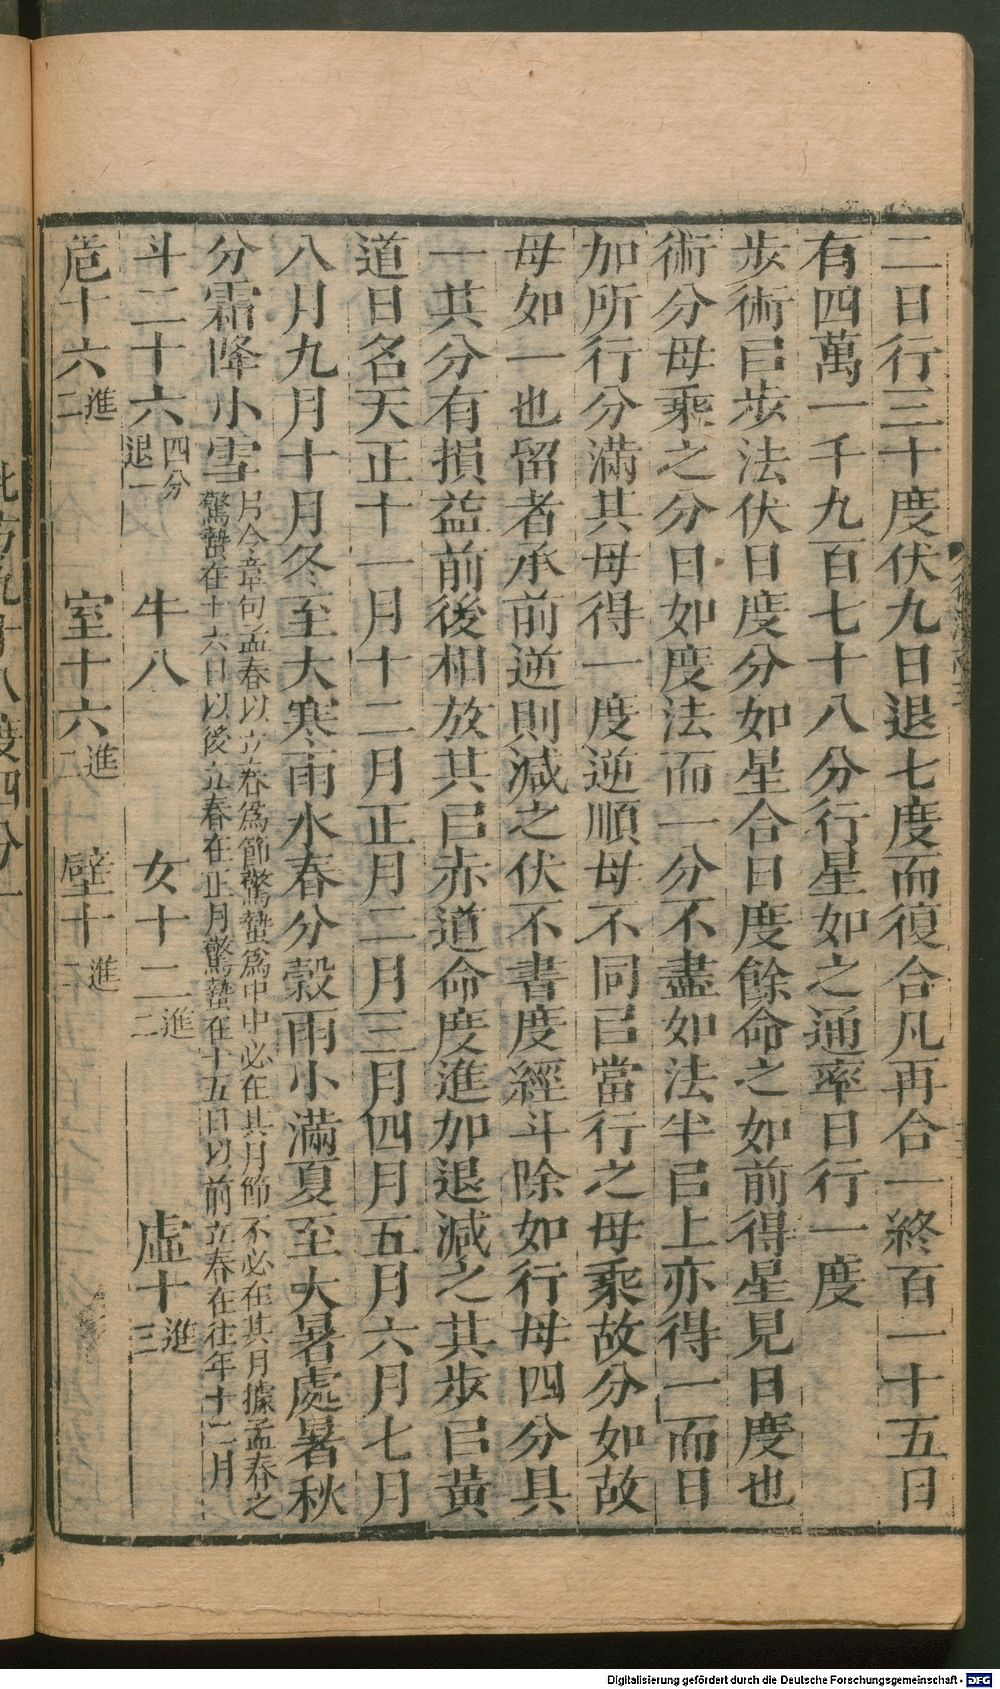 二日行三十度伏九日退七度而復合凡再合一終百一十五日
有四萬一千九百七十八分行星如之通率日行一度
步術㠯步法伏日度分如星合日度餘命之如前得星見日度也
術分母乘之分日如度法而一分不盡如法半㠯上亦得一而日
加所行分滿其母得一度逆順母不同㠯當行之母乘故分如故
母如一也留者承前逆則減之伏不書度經斗除如行母四分具
一其分有損益前後相放其㠯赤道命度進加退減之其步㠯黃
道日名天正十一月十二月正月二月三月四月五月六月七月
八月九月十月冬至大寒雨水春分穀雨小滿夏至大暑處暑秋
分霜降小雪月令章句孟春以立春爲節驚蟄爲中中必在其月節不必在其月據孟春之
驚蟄在十六日以後立春在正月驚蟄在十五日以前立春在往年十二月
斗二十六四分退一 牛八 女十二進二 虛十進三
危十六進二 室十六進三 壁十進二
Digitalisierung gefördert durch die Deutsche Forschungsgemeinschaft - DFG